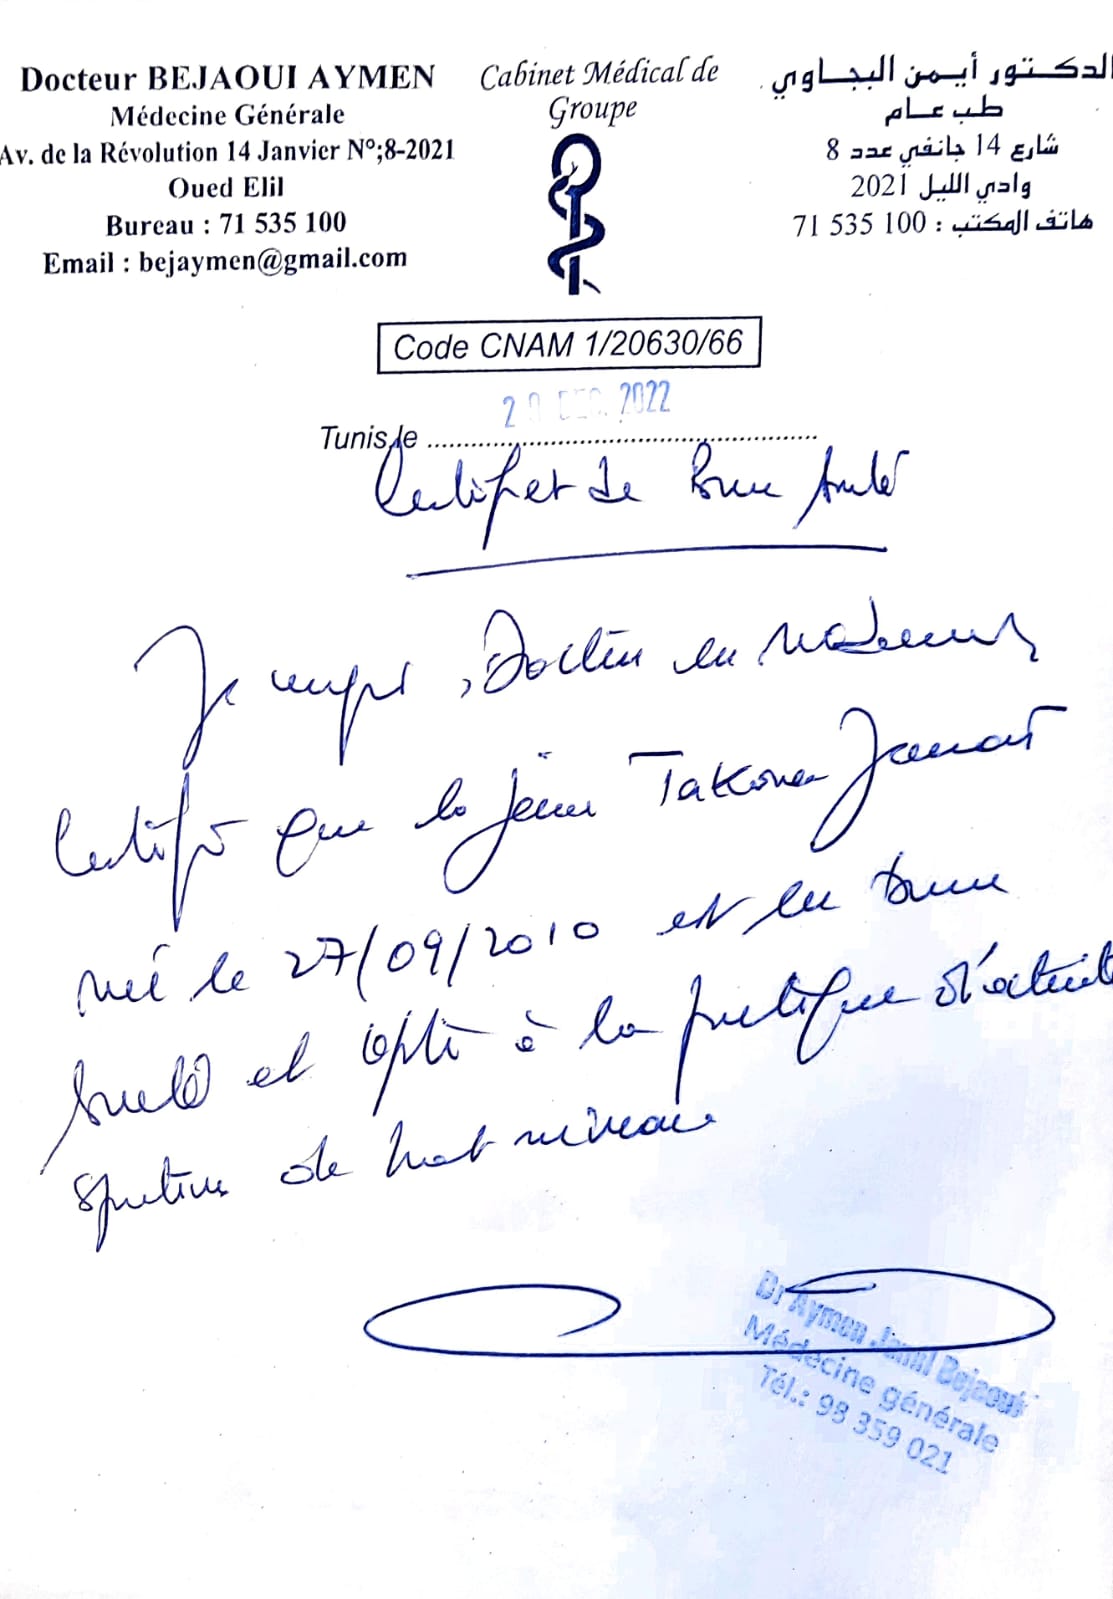 Docteur BEJAOUI AYMEN
Médecine Générale
Av. de la Révolution 14 Janvier N°;8-2021
Oued Elil
Bureau : 71 535 100
Email : bejaymen@gmail.com
Cabinet Médical de
Groupe
الدكتور أيمن البجاوي
طب عام
شارع 14 جانفي عدد 8
وادي الليل 2021
هاتف المكتب : 100 535 71
Code CNAM 1/20630/66
DEC. 2022
Tunis, le
Certificat de Bonne Santé
Je soussigné, Docteur en Médecine
certifie que le jeune
né le 27/09/2010 est en bonne
santé et apte à la pratique d'activité
sportive de haut niveau
Dr Aymen Jamil Bejaoui
Médecine générale
Tél.: 98 359 021